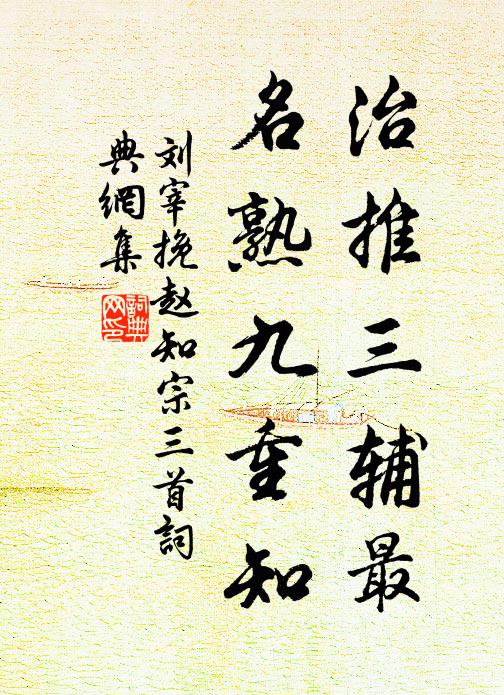 治推三辅最
名熟九重知
刘宰挽赵知宗三首词
典网集
词典网印